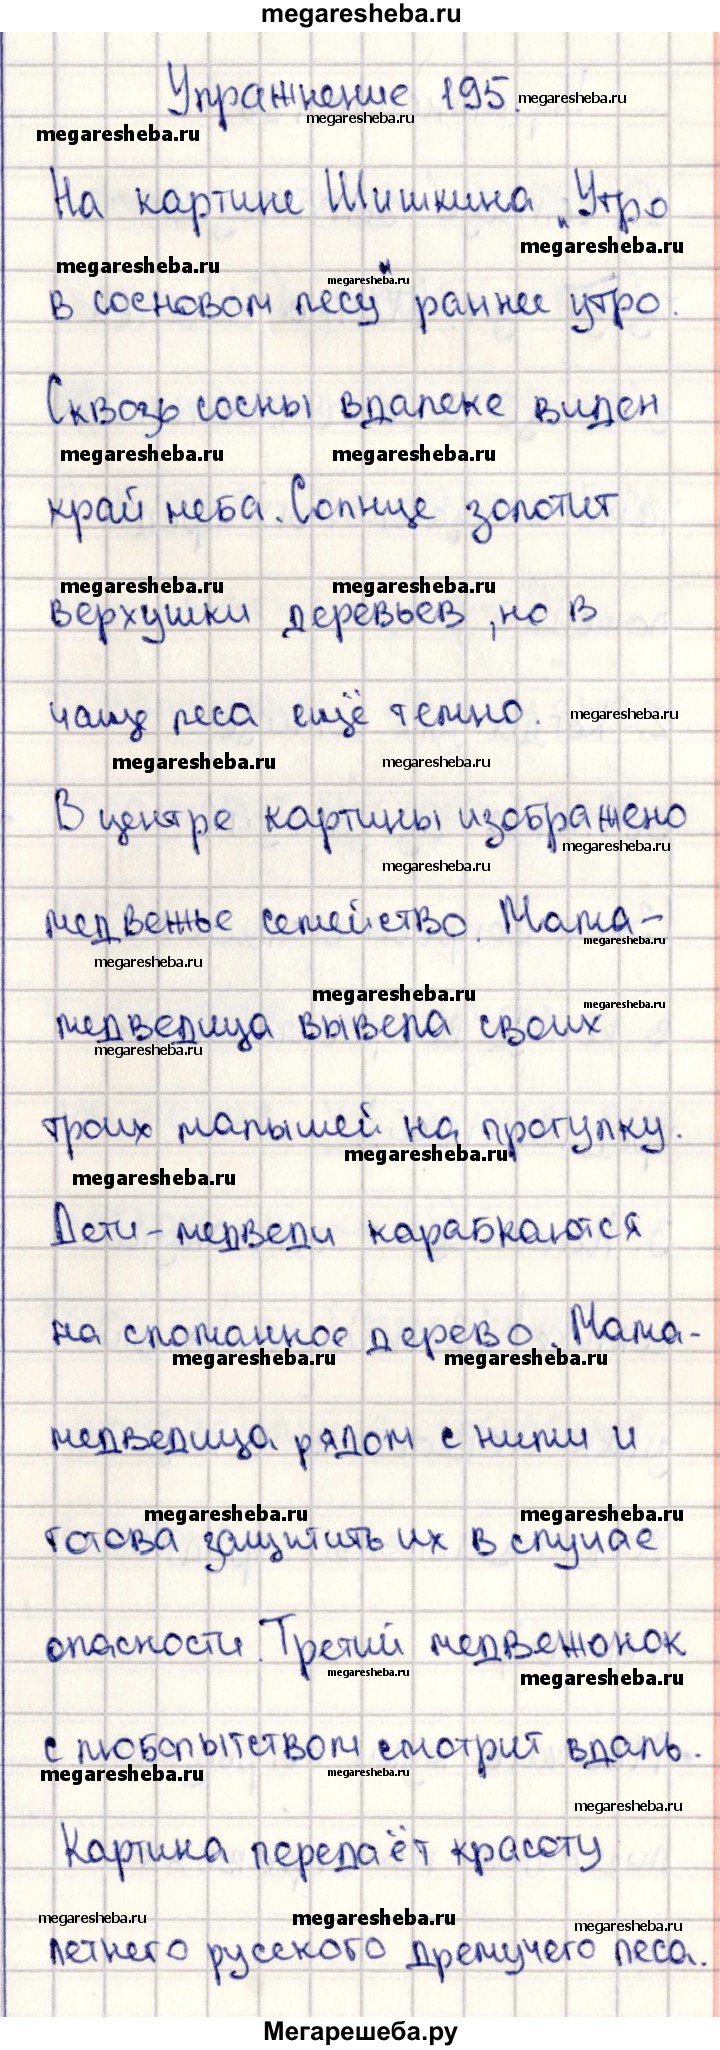 megaresheba.ru
Упражнение 195.
megaresheba.ru
megaresheba.ru
megaresheba.ru
На картине Шишкина „Утро
megaresheba.ru
megaresheba.ru
megaresheba.ru
в сосновом лесу" раннее утро.
Сквозь сосны вдалеке виден
megaresheba.ru megaresheba.ru
край неба. Солнце золотит
megaresheba.ru megaresheba.ru
верхушки деревьев, но в
чаще леса ещё темно.
megaresheba.ru
megaresheba.ru megaresheba.ru
В центре картины изображено
megaresheba.ru
megaresheba.ru
медвежье семейство. Мама-
megaresheba.ru
megaresheba.ru
megaresheba.ru
megaresheba.ru
медведица вывела своих
megaresheba.ru
троих малышей на прогулку.
megaresheba.ru
megaresheba.ru
Дети-медведи карабкаются
на сломанное дерево. Мама-
megaresheba.ru megaresheba.ru
медведица рядом с ними и
megaresheba.ru megaresheba.ru
готова защитить их в случае
опасности. Третий медвежонок
megaresheba.ru megaresheba.ru
с любопытством смотрит вдаль.
megaresheba.ru megaresheba.ru
megaresheba.ru
Картина передаёт красоту
megaresheba.ru megaresheba.ru
megaresheba.ru
летнего русского дремучего леса.
Мегарешеба.ру